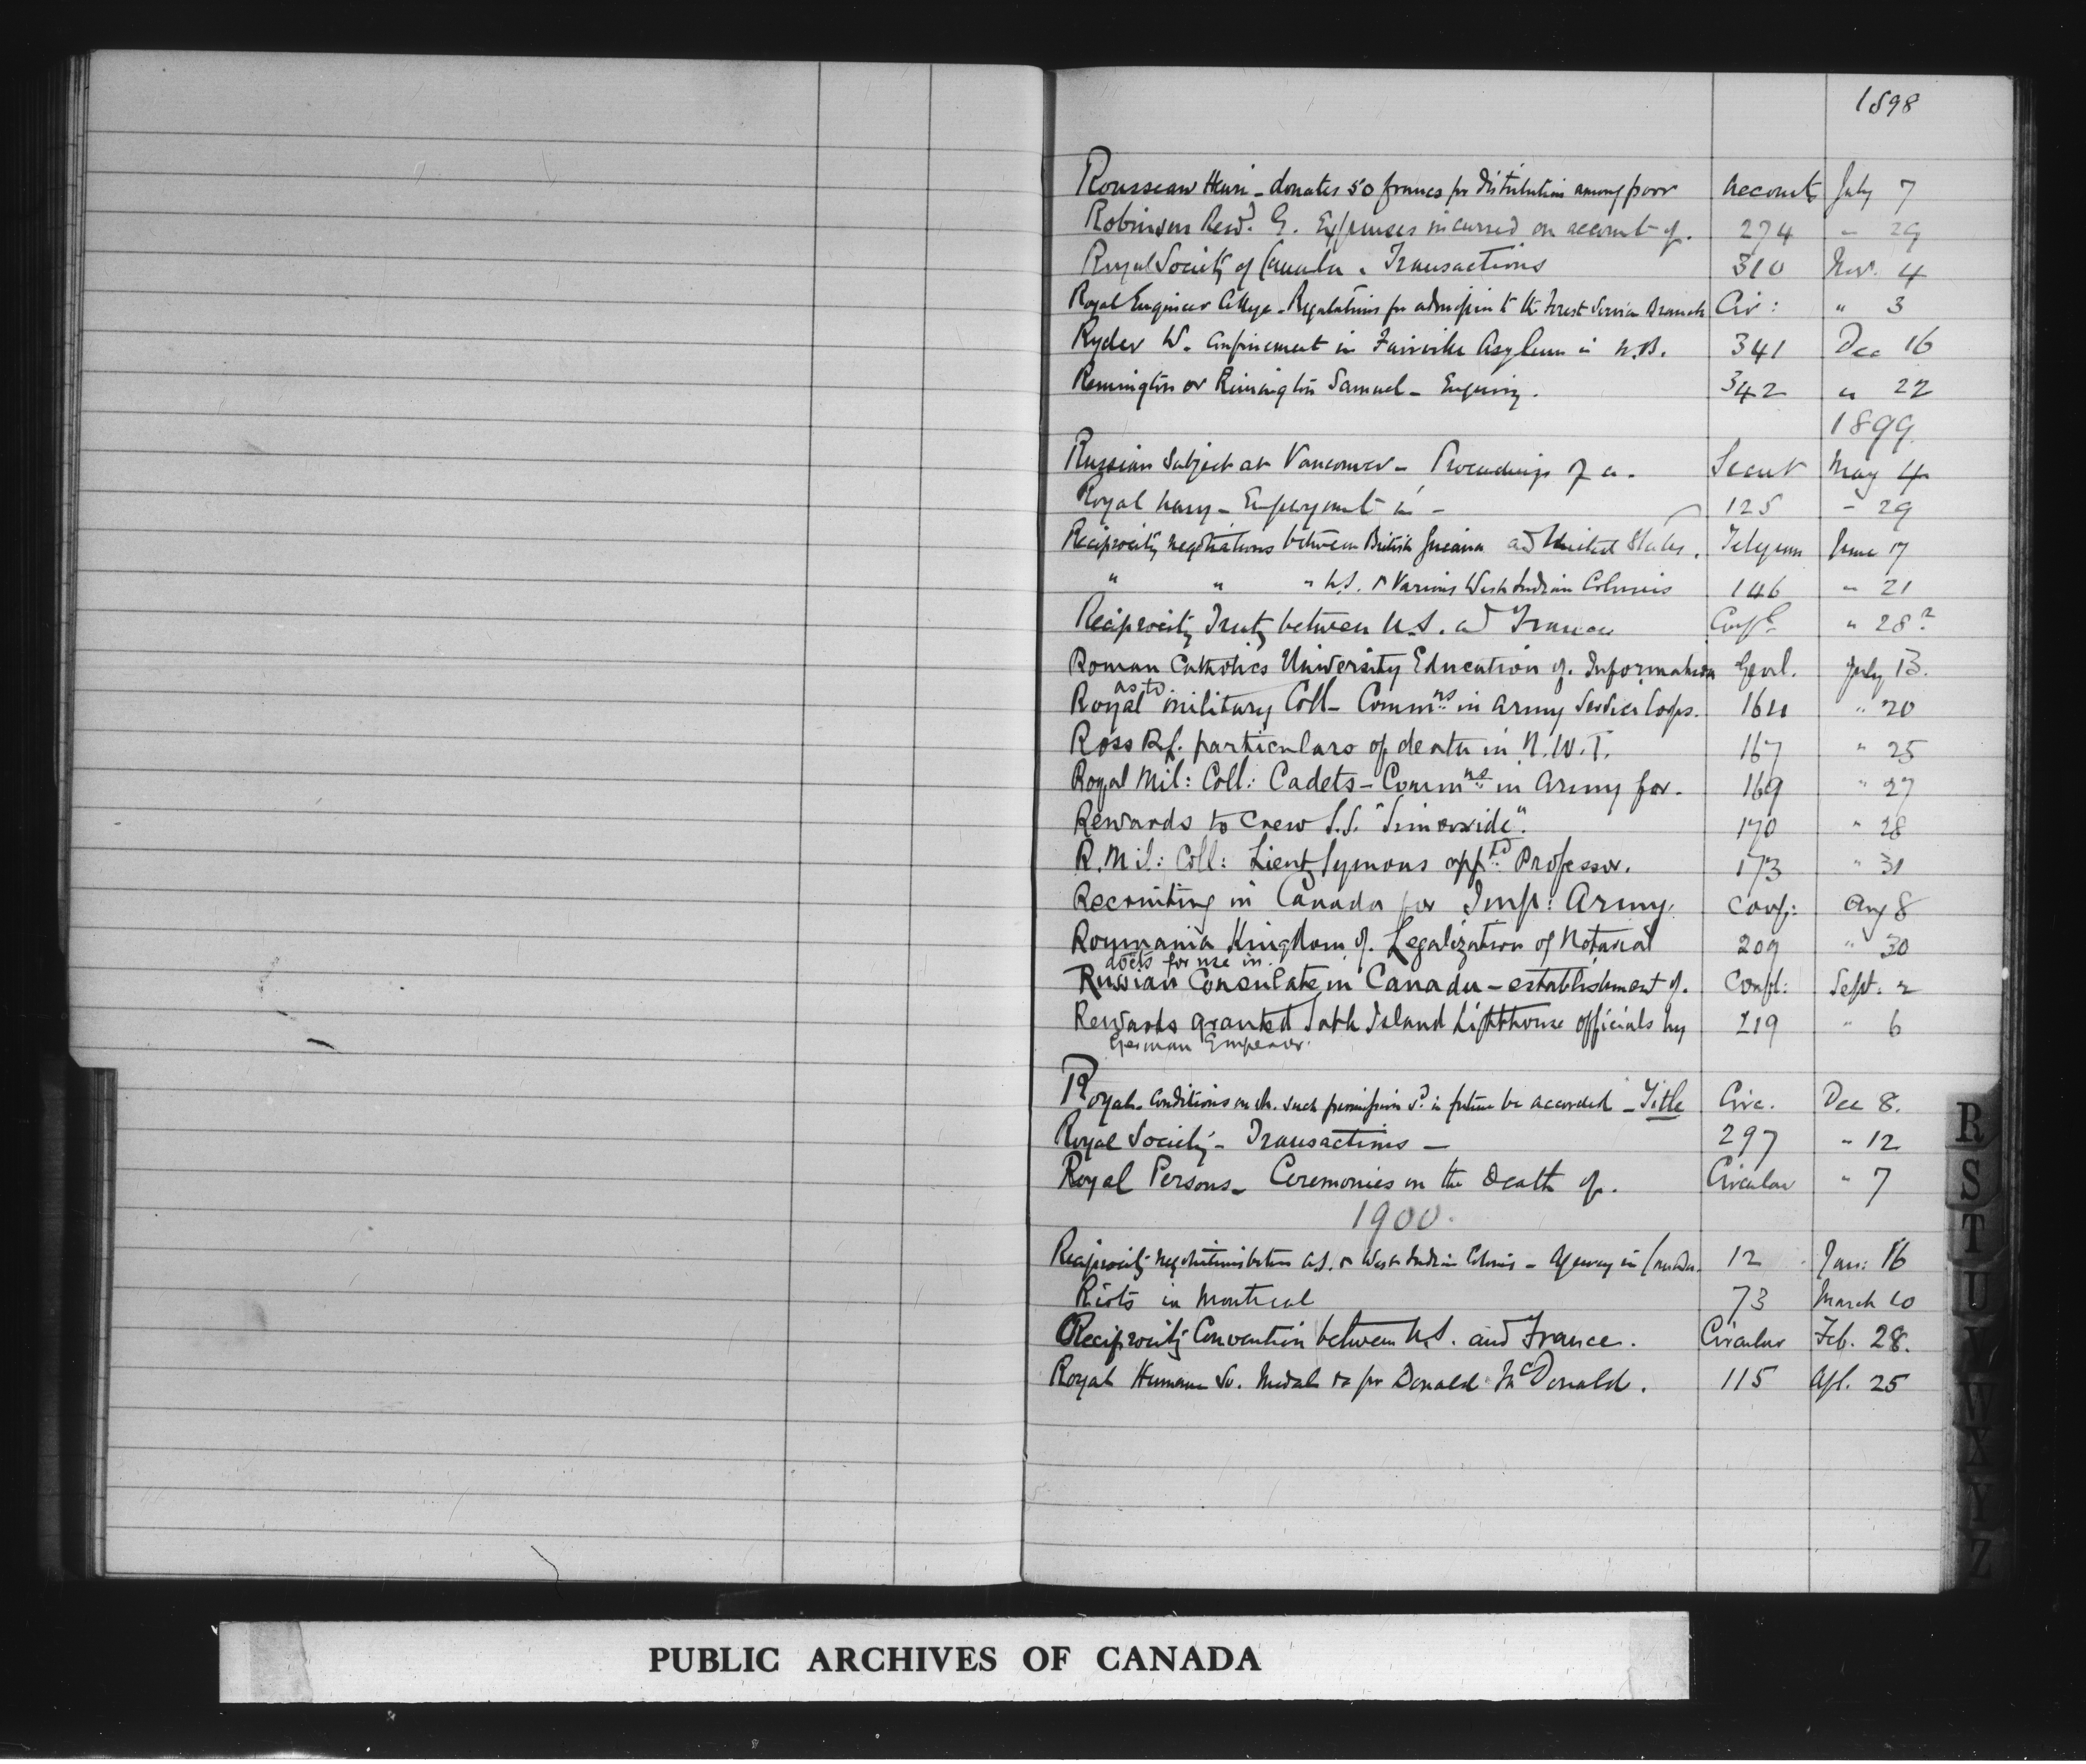 1898
Rousseau Henri - donates 50 francs for distribution among poor Accounts July 7
Robinson Revd. G. Expenses incurred on account of. 274 " 29
Royal Society of Canada. Transactions 310 Nov. 4
Royal Engineer College - Regulations for admission to the Forest Service Branch Cir: " 3
Ryder W. Confinement in Fairville Asylum in N.B. 341 Dec 16
Remington or Rimington Samuel - Enquiry. 342 " 22
1899
Russian Subject at Vancouver - Proceedings of a. Secret May 4
Royal Navy - Employment in - 125 " 29
Reciprocity negotiations between British Guiana and United States. Telegram June 17
" " " U.S. & Various West Indian Colonies 146 " 21
Reciprocity Treaty between U.S. and France Confl " 28?
Roman Catholics University Education of. Information Genl. July 13.
as to
Royal Military Coll - Commns in Army Service Corps. 164 " 20
Ross R.f. particulars of death in N.W.T. 167 " 25
Royal Mil: Coll: Cadets - Commns in Army for. 169 " 27
Rewards to Crew S.S. 170 " 28
R. Mil: Coll: Lieut Symons apptd Professor. 173 " 31
Recruiting in Canada for Imp: Army. Conf: Aug 8
Roumania Kingdom of. Legalization of Notarial 209 " 30
docts for use in.
Russian Consulate in Canada - establishment of. Confl: Sept. 2
Rewards granted Sable Island Lighthouse officials by 219 " 6
German Emperor.
Royal - Conditions on wh. such permission sd. in future be accorded - Title Circ. Dec 8.
Royal Society - Transactions - 297 " 12
Royal Persons - Ceremonies on the Death of. Circular " 7
1900.
Reciprocity negotiations between U.S. & West Indian Colonies - Agency in Canada. 12 Jan: 16
Riots in Montreal 73 March 10
Reciprocity Convention between U.S. and France. Circular Feb. 28.
Royal Humane So. Medal &c for Donald McDonald. 115 Apl. 25
R
S
T
U
V
W
X
Y
Z
PUBLIC ARCHIVES OF CANADA